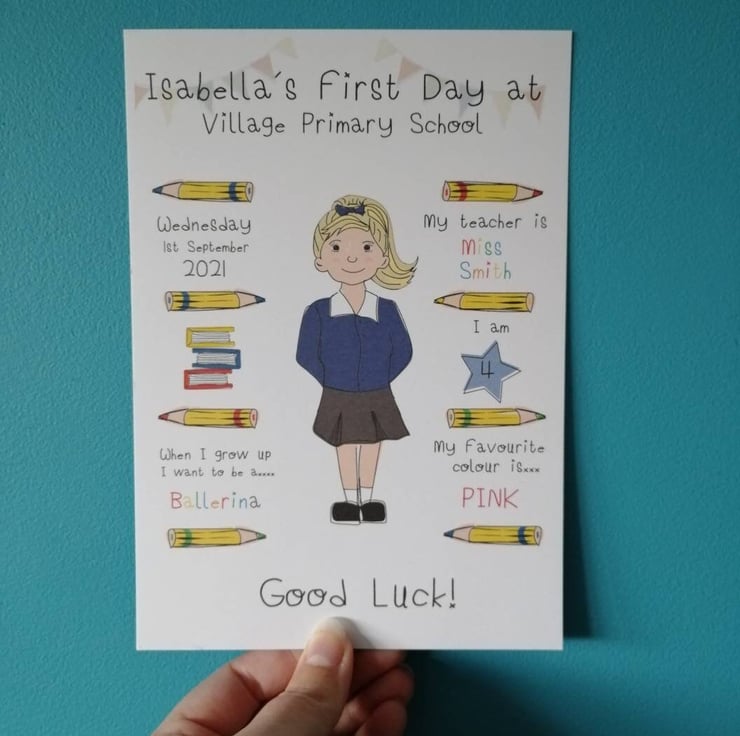 Isabella's First Day at
Village Primary School
Wednesday
1st September
2021
When I grow up
I want to be a....
Ballerina
My teacher is
Miss
Smith
I am
4
My Favourite
colour is...
PINK
Good Luck!